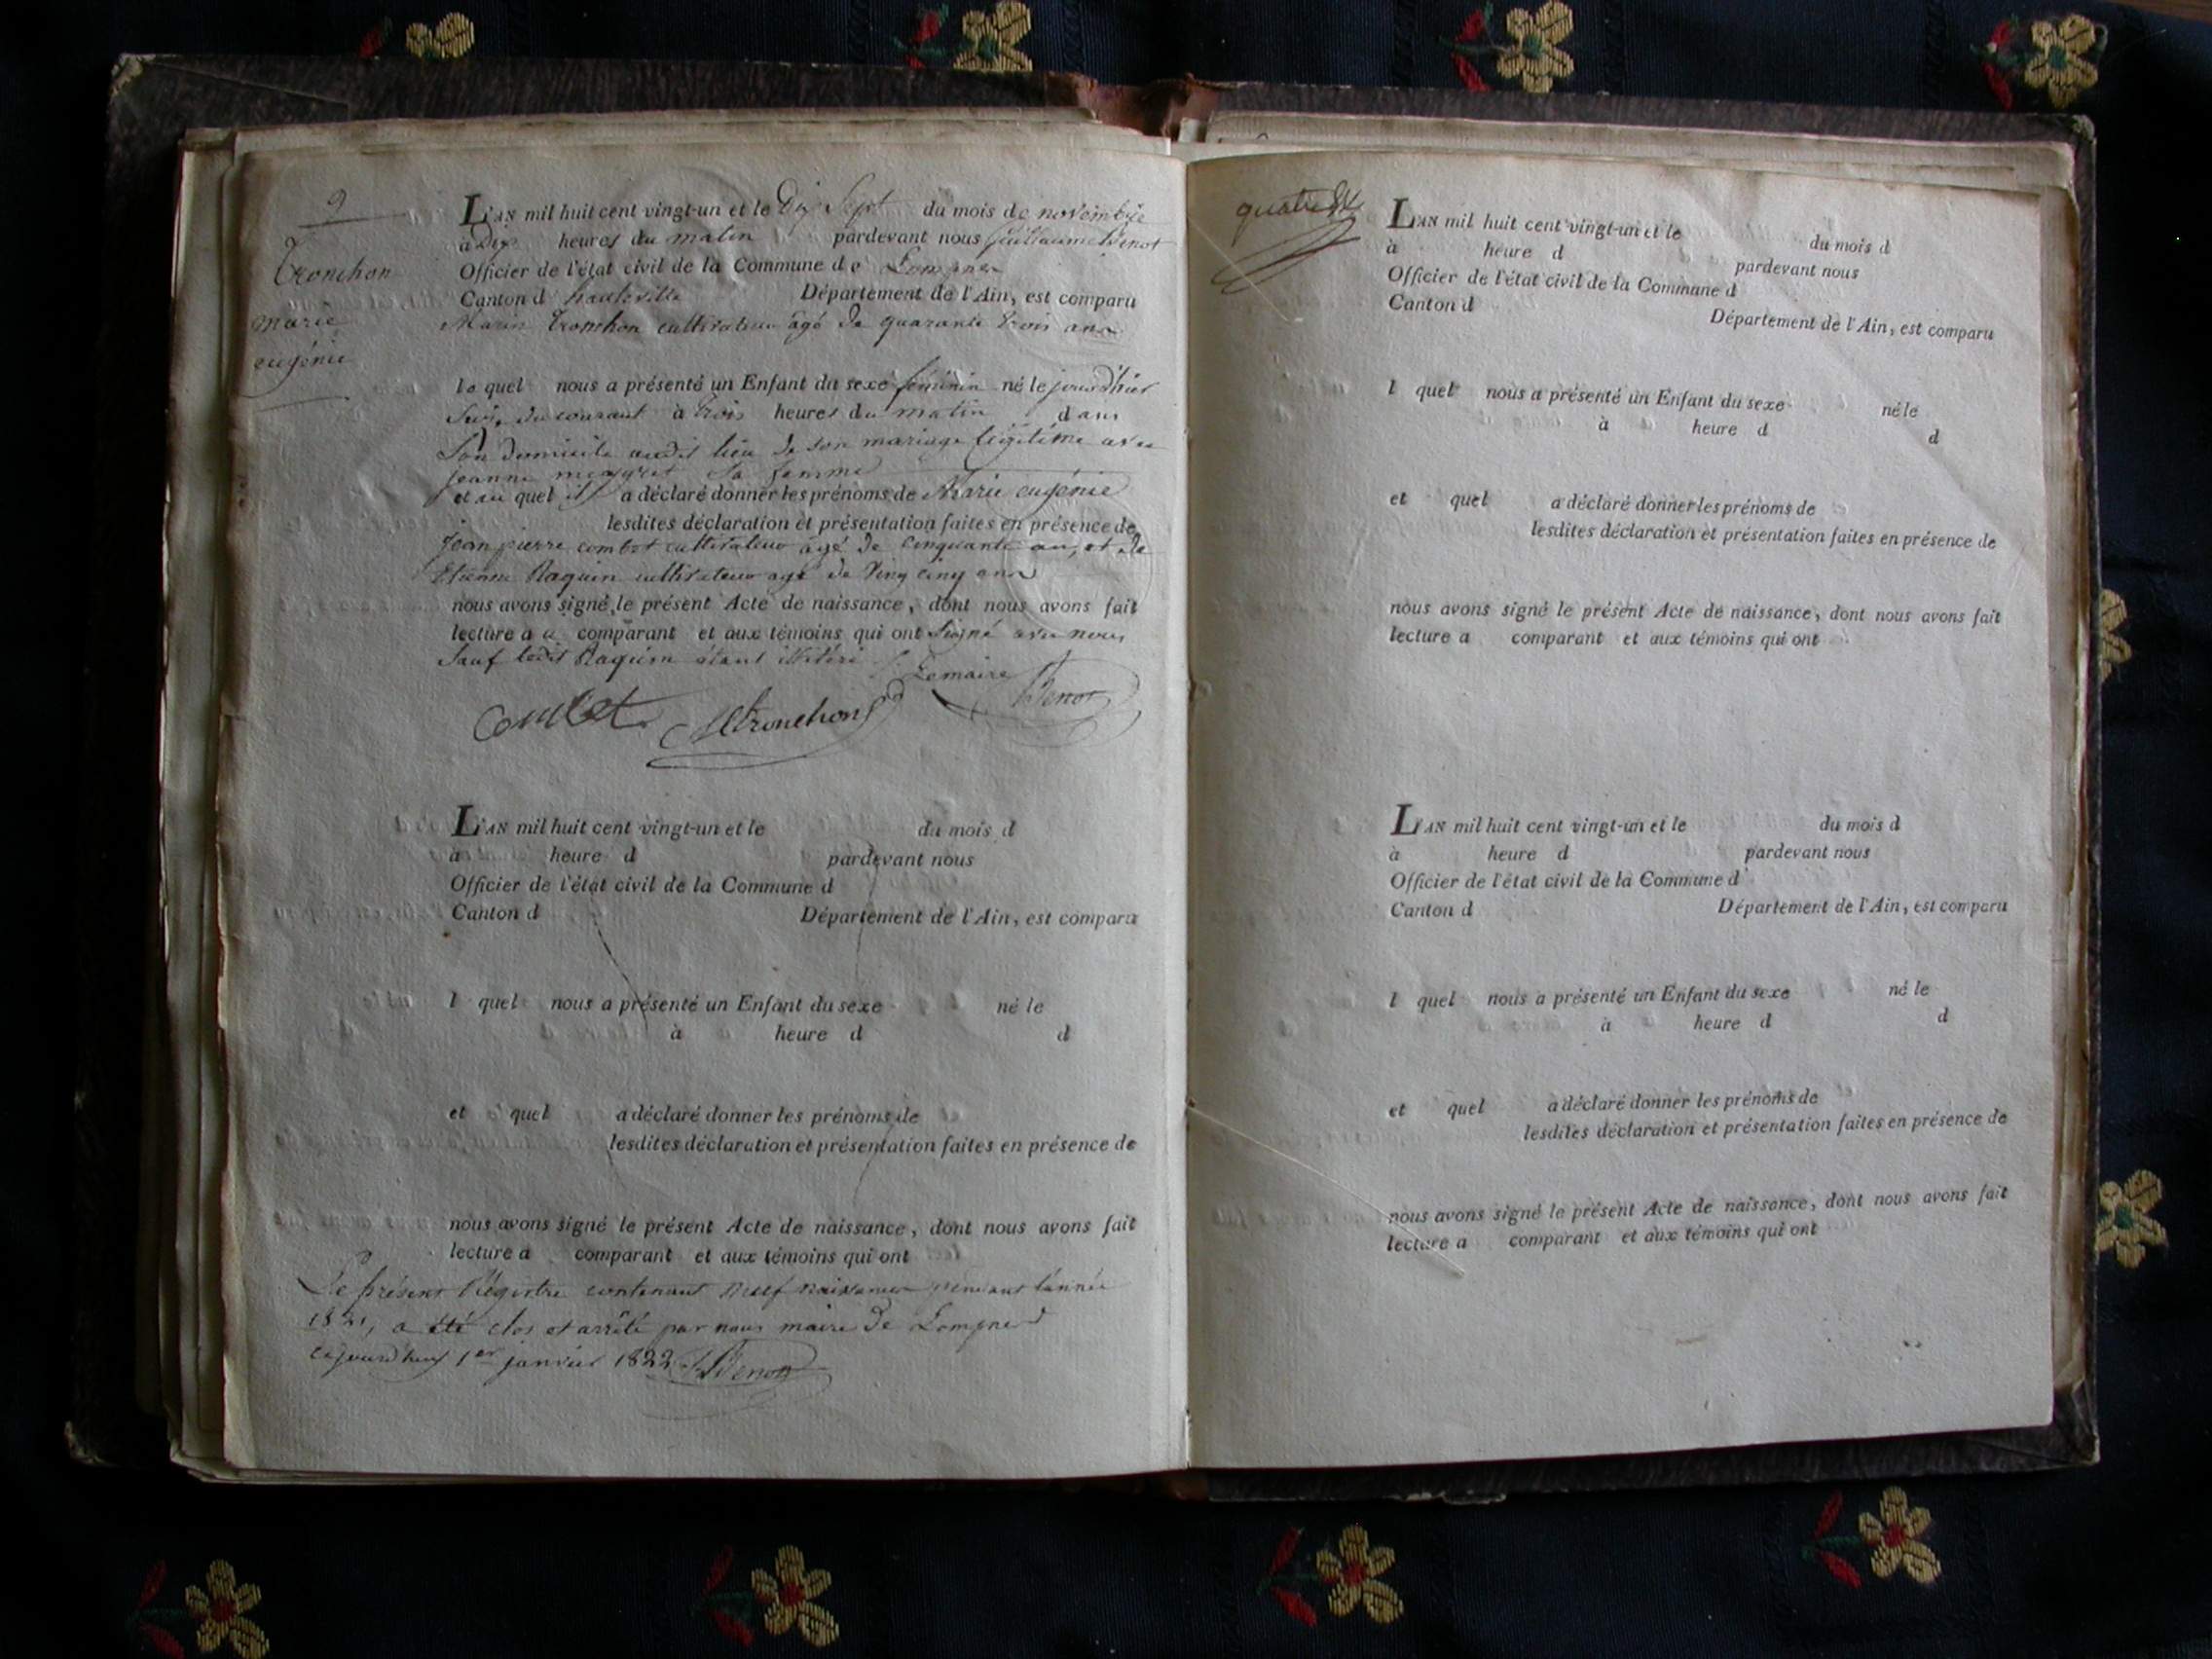 9
Tronchon
marie
eugénie
L'AN mil huit cent vingt-un et le Dix Sept du mois de novembre
à Dix heures du matin pardevant nous Guillaume Benot
Officier de l'état civil de la Commune de Lompnes
Canton d hauteville Département de l'Ain, est comparu
Marin Tronchon cultivateur âgé de quarante trois ans
le quel nous a présenté un Enfant du sexe féminin né le jour d'hier
Seize du courant à trois heures du matin dans
Son domicile audit lieu de son mariage légitime avec
jeanne sa femme
et au quel il a déclaré donner les prénoms de Marie eugénie
lesdites déclaration et présentation faites en présence de
jean pierre combet cultivateur âgé de cinquante ans, et de
Etienne Raquin cultivateur agé de Vingt cinq ans
nous avons signé le présent Acte de naissance, dont nous avons fait
lecture a u comparant et aux témoins qui ont Signé avec nous
Sauf ledit Raquin étant illitéré
Lemaire
combet Mtronchon Benot
L'AN mil huit cent vingt-un et le du mois d
à heure d pardevant nous
Officier de l'état civil de la Commune d
Canton d Département de l'Ain, est comparu
l quel nous a présenté un Enfant du sexe né le
à heure d d
et quel a déclaré donner les prénoms de
lesdites déclaration et présentation faites en présence de
nous avons signé le présent Acte de naissance, dont nous avons fait
lecture a comparant et aux témoins qui ont
Le présent Régistre contenant neuf naissances pendant l'année
1821, a été clos et arrêté par nous maire de Lompnes
aujourd'huy 1er janvier 1822 Benot
L'AN mil huit cent vingt-un et le du mois d
à heure d pardevant nous
Officier de l'état civil de la Commune d
Canton d Département de l'Ain, est comparu
l quel nous a présenté un Enfant du sexe né le
à heure d d
et quel a déclaré donner les prénoms de
lesdites déclaration et présentation faites en présence de
nous avons signé le présent Acte de naissance, dont nous avons fait
lecture a comparant et aux témoins qui ont
L'AN mil huit cent vingt-un et le du mois d
à heure d pardevant nous
Officier de l'état civil de la Commune d
Canton d Département de l'Ain, est comparu
l quel nous a présenté un Enfant du sexe né le
à heure d d
et quel a déclaré donner les prénoms de
lesdites déclaration et présentation faites en présence de
nous avons signé le présent Acte de naissance, dont nous avons fait
lecture a comparant et aux témoins qui ont